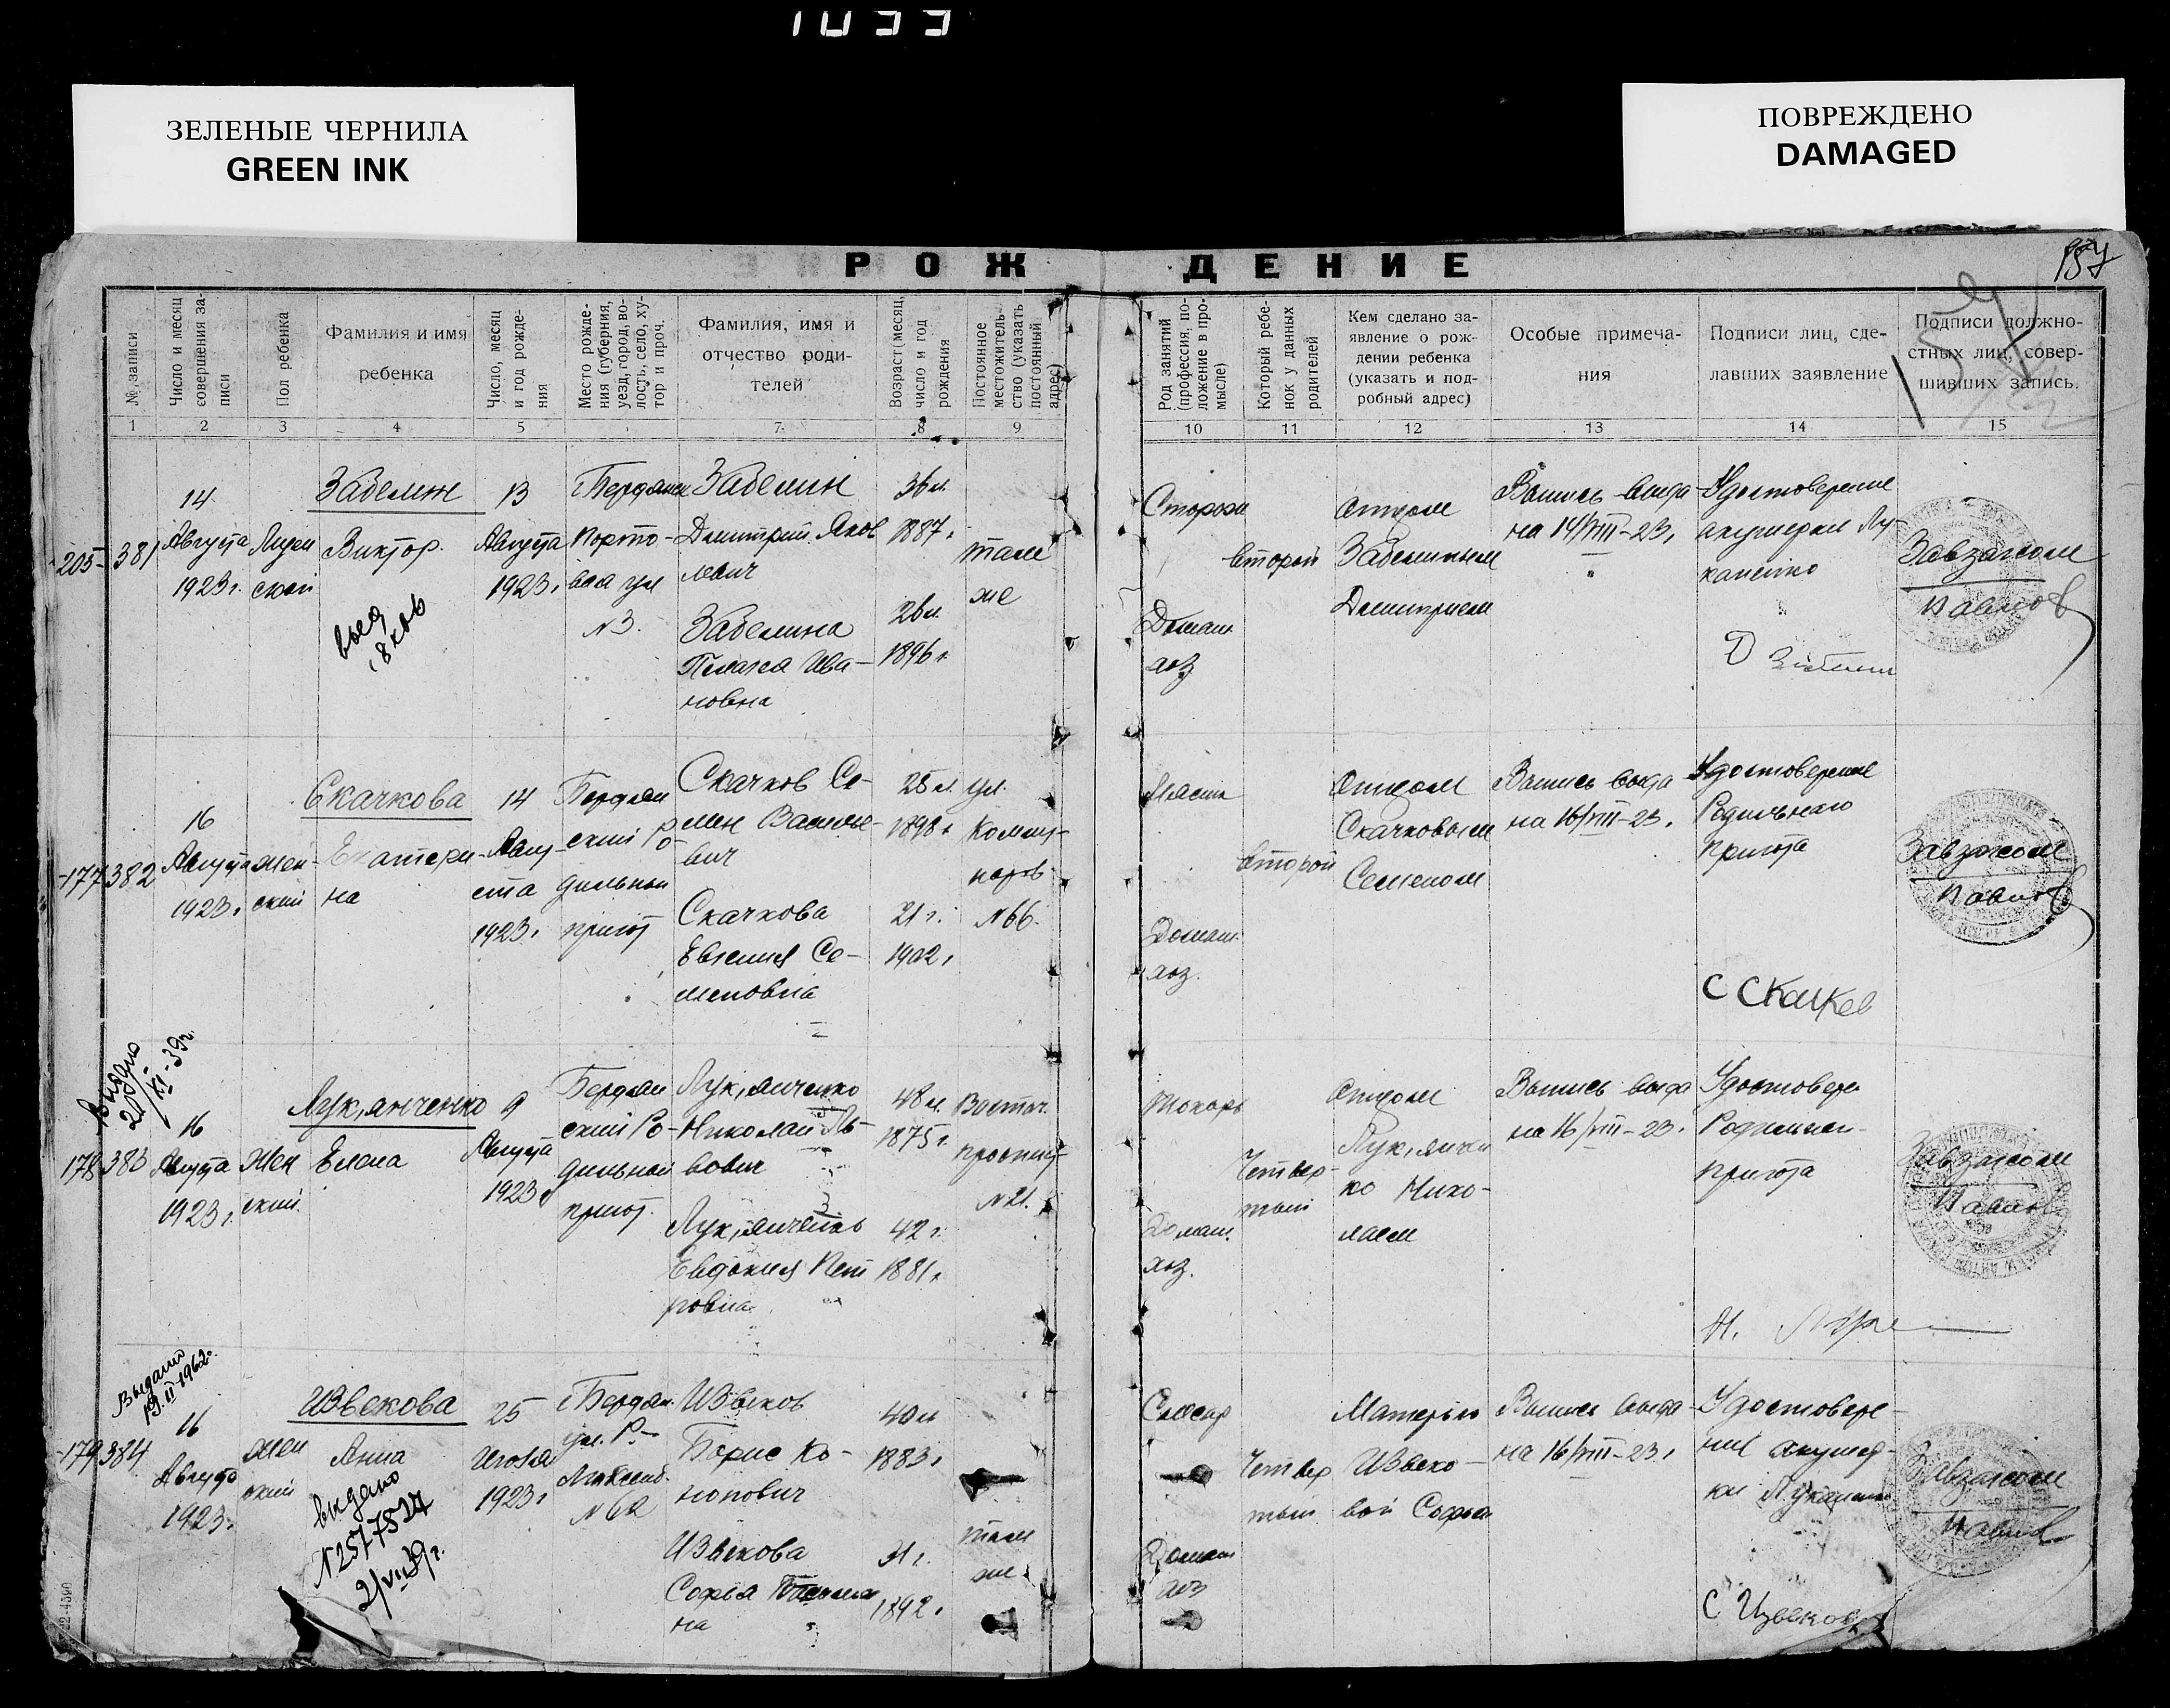 1033
ЗЕЛЕНЫЕ ЧЕРНИЛА
GREEN INK
ПОВРЕЖДЕНО
DAMAGED
РОЖДЕНИЕ
157
№ записи
Число и месяц
совершения за-
писи
Пол ребенка
Фамилия и имя
ребенка
Число, месяц
и год рожде-
ния
Место рожде-
ния (губерния,
уезд, город, во-
лость, село, ху-
тор и проч.
Фамилия, имя и
отчество роди-
телей
Возраст, месяц,
число и год
рождения
Постоянное
местожитель
ство (указать
постоянный
адрес)
Род занятий
(профессия, по-
ложение в про-
мысле)
Который ребе-
нок у данных
родителей
Кем сделано за-
явление о рож-
дении ребенка
(указать и под-
робный адрес)
Особые примеча-
ния
Подписи лиц, сде-
лавших заявление
Подписи должно-
стных лиц, совер-
шивших запись.
1 2 3 4 5 7 8 9 10 11 12 13 14 15
205 381
14
Августа
1923 г.
Мужской
Забелин
Виктор.
13
Августа
1923 г.
Бердянск
Порто-
вая ул
№3.
Забелин
Дмитрий Яков
левич
Забелина
Пелагея Ива-
новна
36 л.
1887 г.
26 л.
1896 г.
там
же
Сторож
Домаш.
хоз
второй
отцом
Забелиным
Дмитрием
Выпись выда-
на 14/VIII-23 г.
Удостоверение
акушерки Лу-
каненко
Д Забелин
Завзагсом
Павлов
177 382
16
Августа
1923 г.
женский
Скачкова
Екатери-
на
14
Авгу-
ста
1923 г.
Бердян
ский Ро-
дильный
приют
Скачков Се-
мен Василье-
вич
Скачкова
Евгения Се-
меновна
25 л.
1898 г.
21 г.
1902 г.
ул.
Комму-
наров
№66.
Домаш.
хоз.
второй
Отцом
Скачковым
Семеном
Выпись выда
на 16/VIII-23 г.
Удостоверение
Родильного
приюта
С Скачков
Завзагсом
Павлов
Выдано
21/XI-39г.
178 383
16
Августа
1923 г.
Женский
Лук,янченко
Елена
9
Августа
1923 г.
Бердян
ский Ро-
дильный
приют.
Лук,янченко
Николай Ль-
вович
Лук,янченко
Евдокия Пет
ровна
48 л.
1875 г.
42 г.
1881 г.
Восточ.
проспект
№21.
Токарь
Домаш.
хоз.
Четвер-
тый
отцом
Лук,янчен
ко Нико-
лаем
Выпись выда
на 16/VIII-23 г.
Удостовере
приюта
Завзагсом
Павлов
Выдано
19.II-1962г.
179 384
16
Августа
1923 г.
женский
Извекова
Анна
выдано
N2577527
2/VII39г.
25
Июля
1923 г
Бердян.
№62
Извеков
Борис Ко-
нонович
Извекова
Софья
на
40 л
1883 г.
31 г.
1892 г.
там
же
Слесар
Домаш
хоз
Четвер
тый
Матерью
Извеко-
вой Софья
Выпись выда-
на 16/VIII-23 г.
Удостовере-
ние акушер-
ки Луканенко
С Извекова
Завзагсом
Павлов